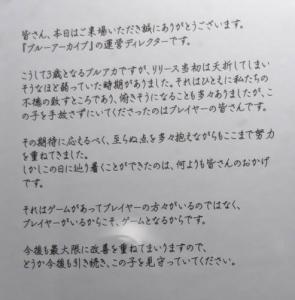 皆さん、本日はご来場いただき誠にありがとうございます。
『ブルーアーカイブ』の運営ディレクターです。
こうして3歳となるブルアカですが、リリース当初は夭折してしまい
そうなほど弱っていた時期がありました。それはひとえに私たちの
不徳の致すところであり、俯きそうになることも多々ありましたが、こ
の子を手放さずにいてくださったのはプレイヤーの皆さんです。
その期待に応えるべく、至らぬ点を多々抱えながらもここまで努力
を重ねてきました。
しかしこの日に辿り着くことができたのは、何よりも皆さんのおかげ
です。
それはゲームがあってプレイヤーの方々がいるのではなく、
プレイヤーがいるからこそ、ゲームとなるからです。
今後も最大限に改善を重ねてまいりますので、
どうか今後も引き続き、この子を見守っていてください。